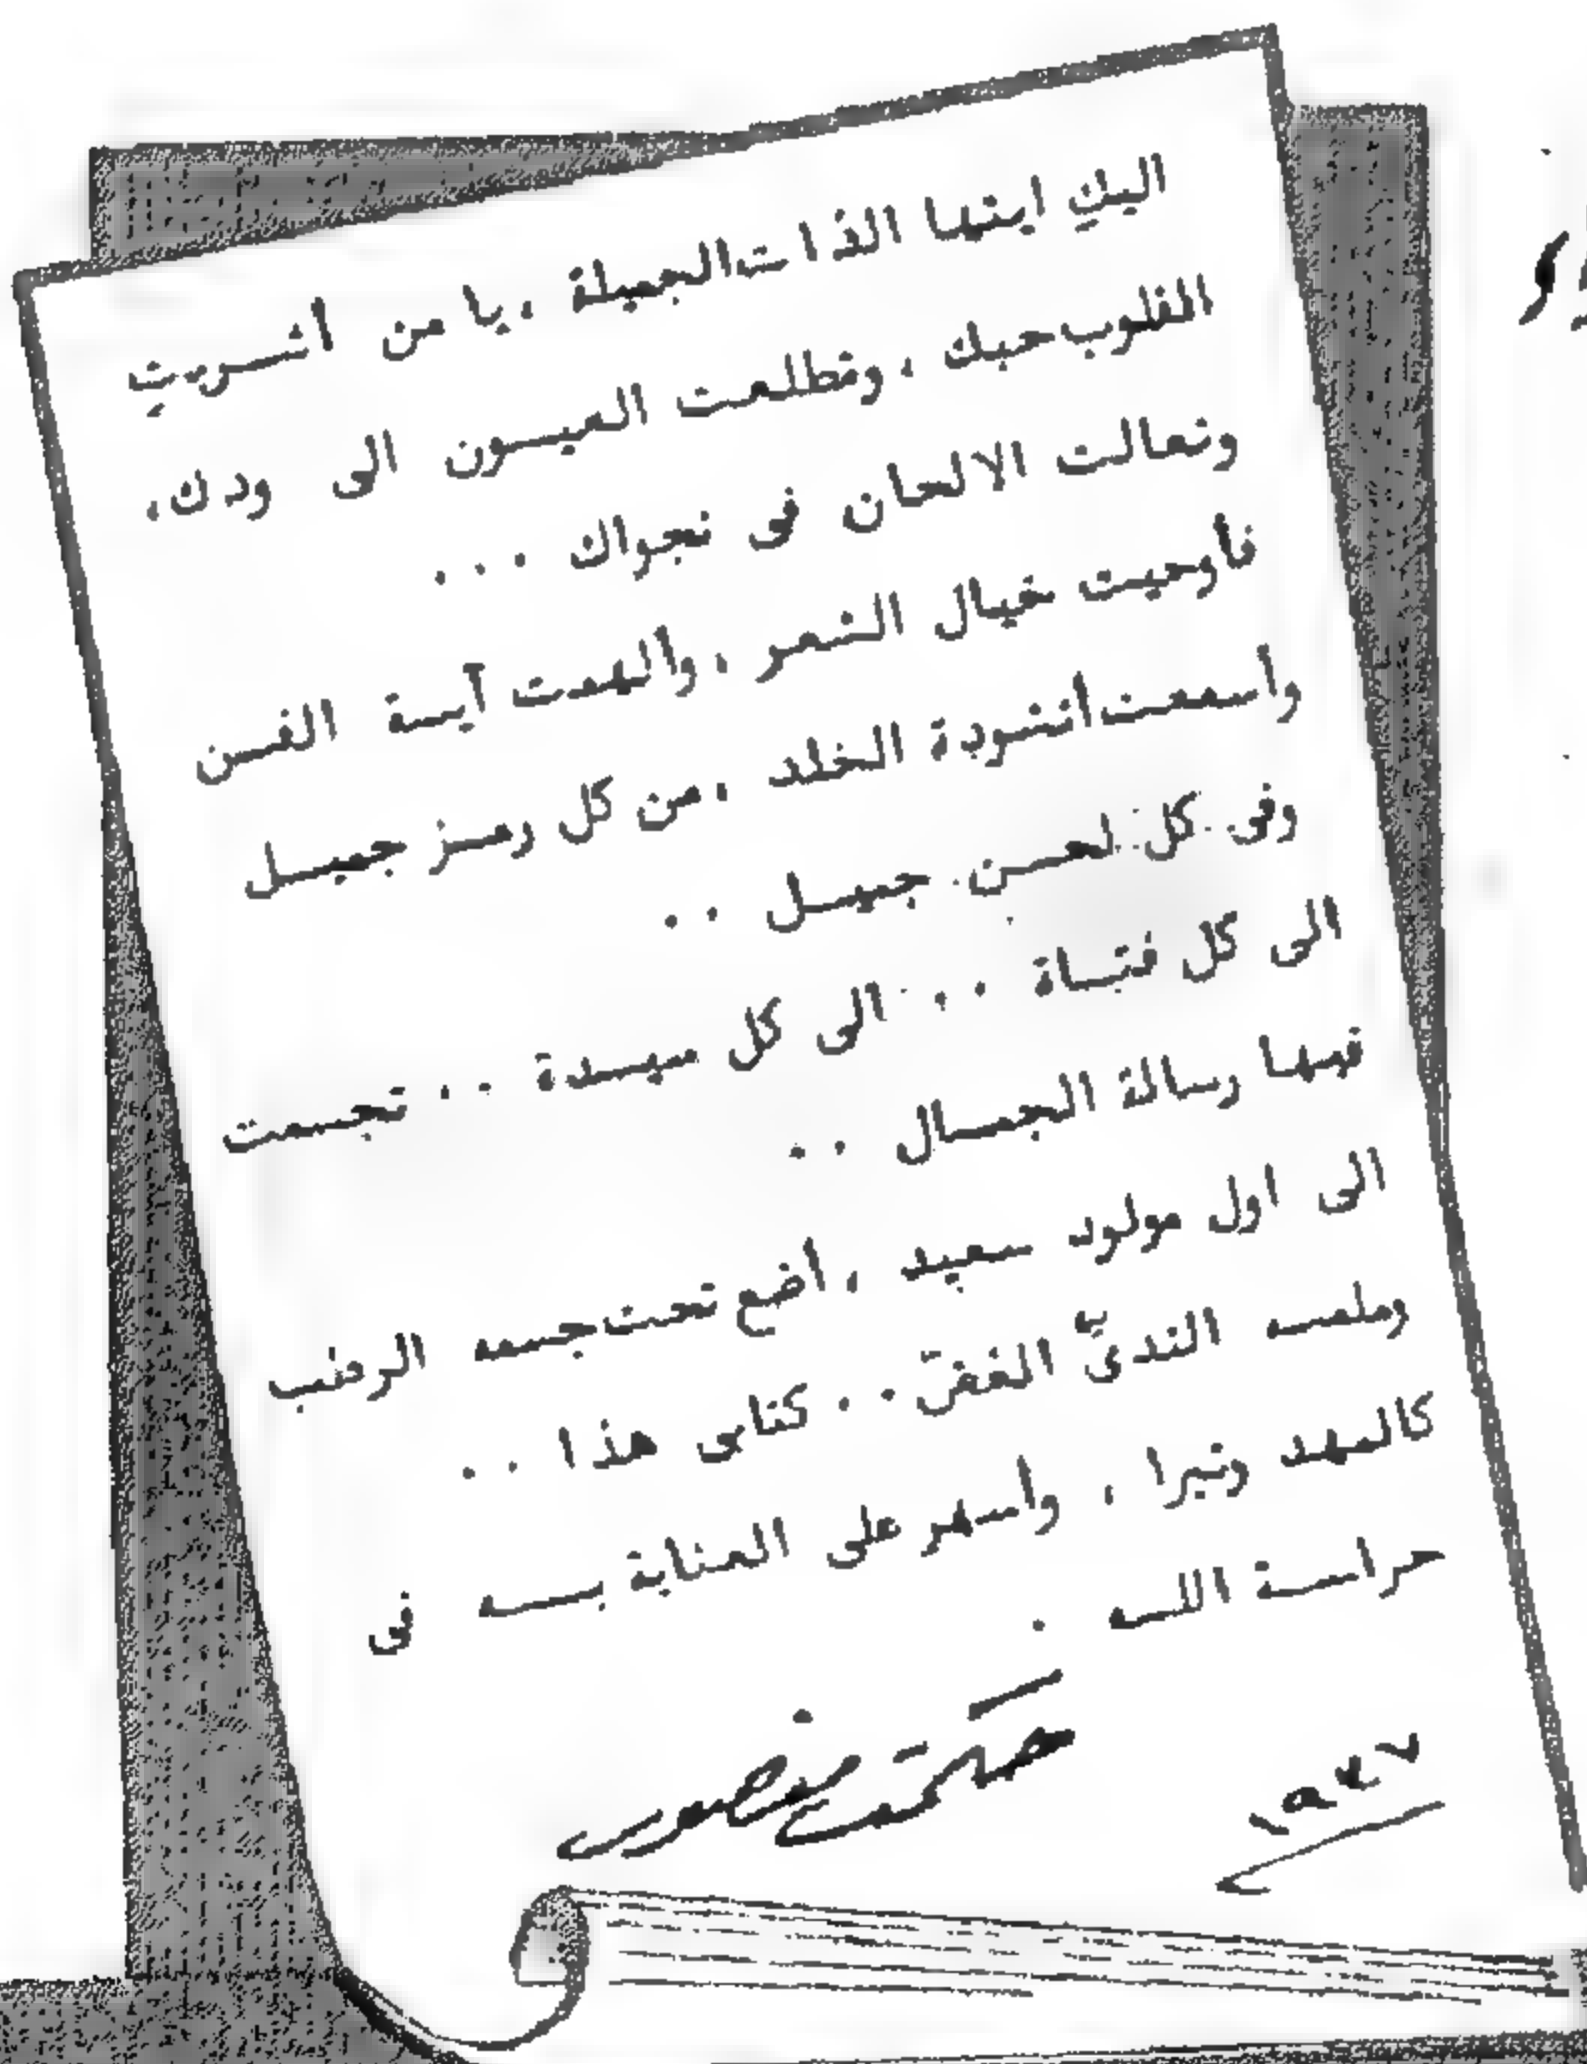 اليكِ ايتها الذات الجميلة ، يا من أشربتِ
القلوب حبك ، وتطلعت العيـون الى ودك ،
وتعالت الالحان فى نجواك ...
فأوحيت خيال الشعر ، وألهمت آيـة الفـن
وأسمعت أنشودة الخلد ، من كل رمـز جميـل
وفى كل لحـن جميـل ..
الى كل فتـاة .. الى كل سيـدة .. تجسمت
فيها رسالة الجمـال ..
الى اول مولود سعيد ، أضع تحت جسمه الرطب
وملمسه النديّ الغضّ .. كتابى هذا ..
كالمهد وثيرا ، وأسهر على العناية بـه فى
حراسـة اللـه .
حكمت منصور
١٩٤٧